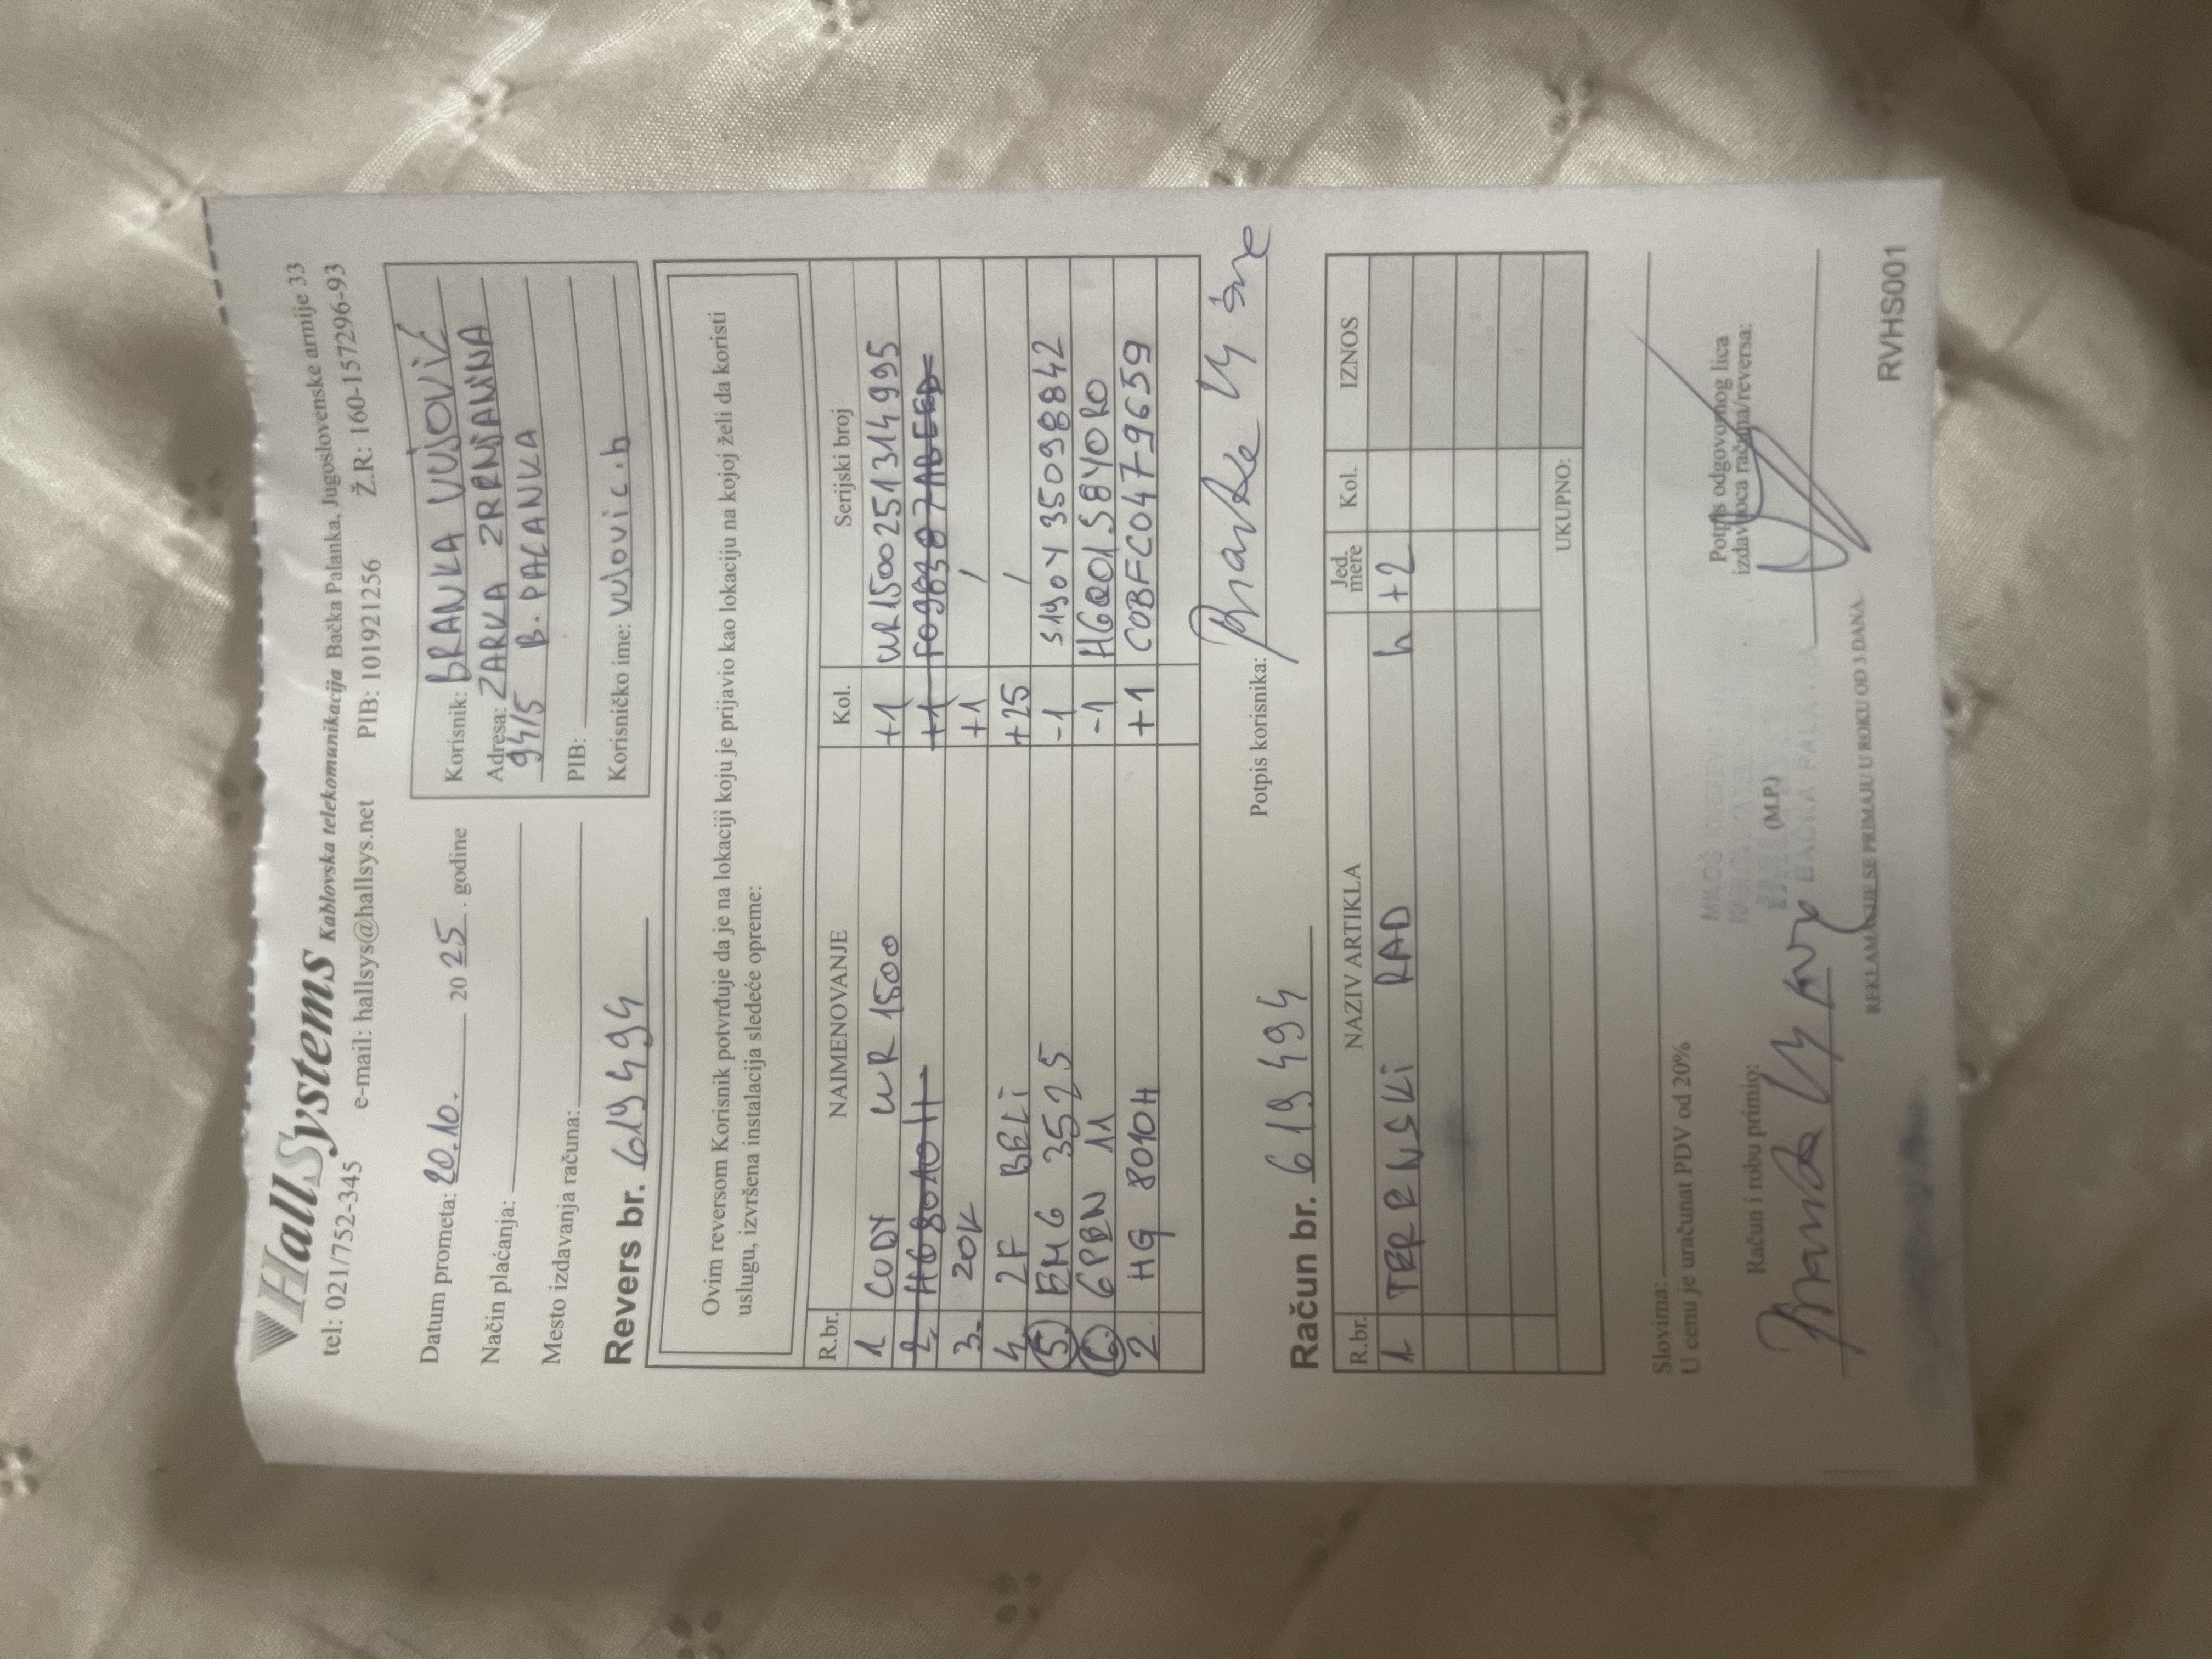 HallSystems Kablovska telekomunikacija Bačka Palanka, Jugoslovenske armije 33
tel: 021/752-345 e-mail: hallsys@hallsys.net PIB: 101921256 Ž.R: 160-157296-93
Datum prometa: 20.10. 2025. godine
Način plaćanja:
Mesto izdavanja računa:
Korisnik: BRANKA VUJOVIĆ
Adresa: ZARKA ZRNJANINA
94/5 B. PALANKA
PIB:
Korisničko ime: vujovic.b
Revers br. 619494
Ovim reversom Korisnik potvrđuje da je na lokaciji koju je prijavio kao lokaciju na kojoj želi da koristi
uslugu, izvršena instalacija sledeće opreme:
R.br. NAIMENOVANJE Kol. Serijski broj
1 CUDY WR 1500 +1 WR1500251314995
2. HG8010H +1
3. 20K +1 /
4 2F BELI +25 /
5. EMG 3525 -1 S190Y35098842
6. GPBN 11 -1 HGQ01S8Y0R0
2 HG 8010H +1 C0BFC0479659
Potpis korisnika:
Račun br. 619494
R.br. NAZIV ARTIKLA Jed. mere Kol. IZNOS
1 TERENSKI RAD h +2
UKUPNO:
Slovima:
U cenu je uračunat PDV od 20%
Račun i robu primio:
(M.P.)
BAČKA PALANKA
Potpis odgovornog lica
izdavaoca računa/reversa:
REKLAMACIJE SE PRIMAJU U ROKU OD 3 DANA
RVHS001